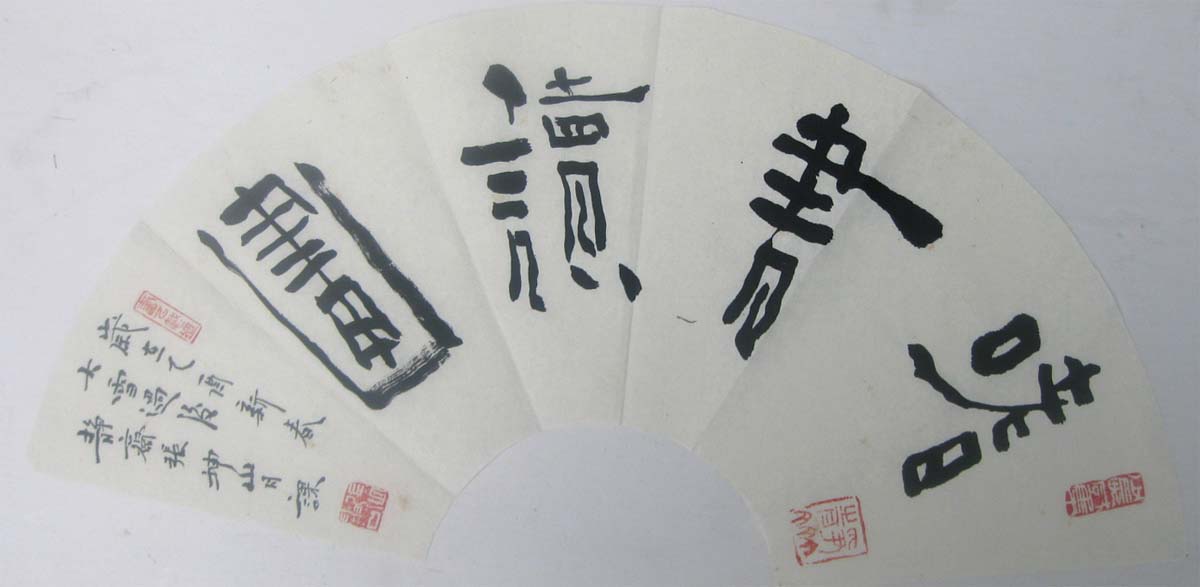 嗜書讀畫
歲在乙酉新春
大雪過後
靜齋張坤山日課